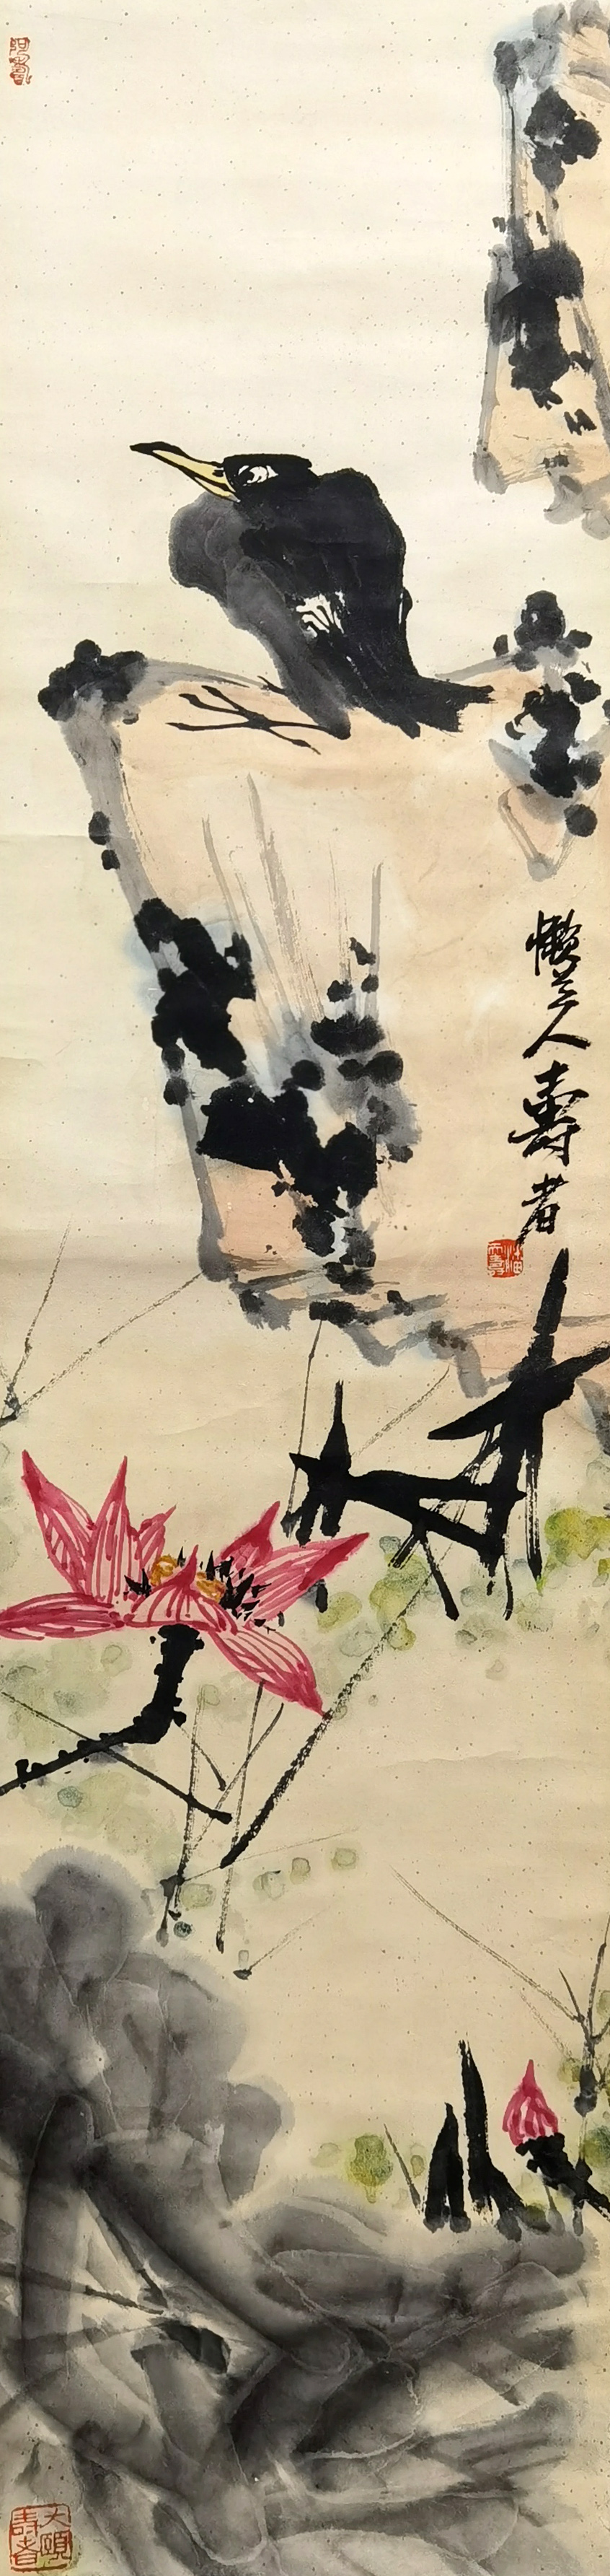 阿壽
懶道人壽者
潘天壽
大頤
壽者